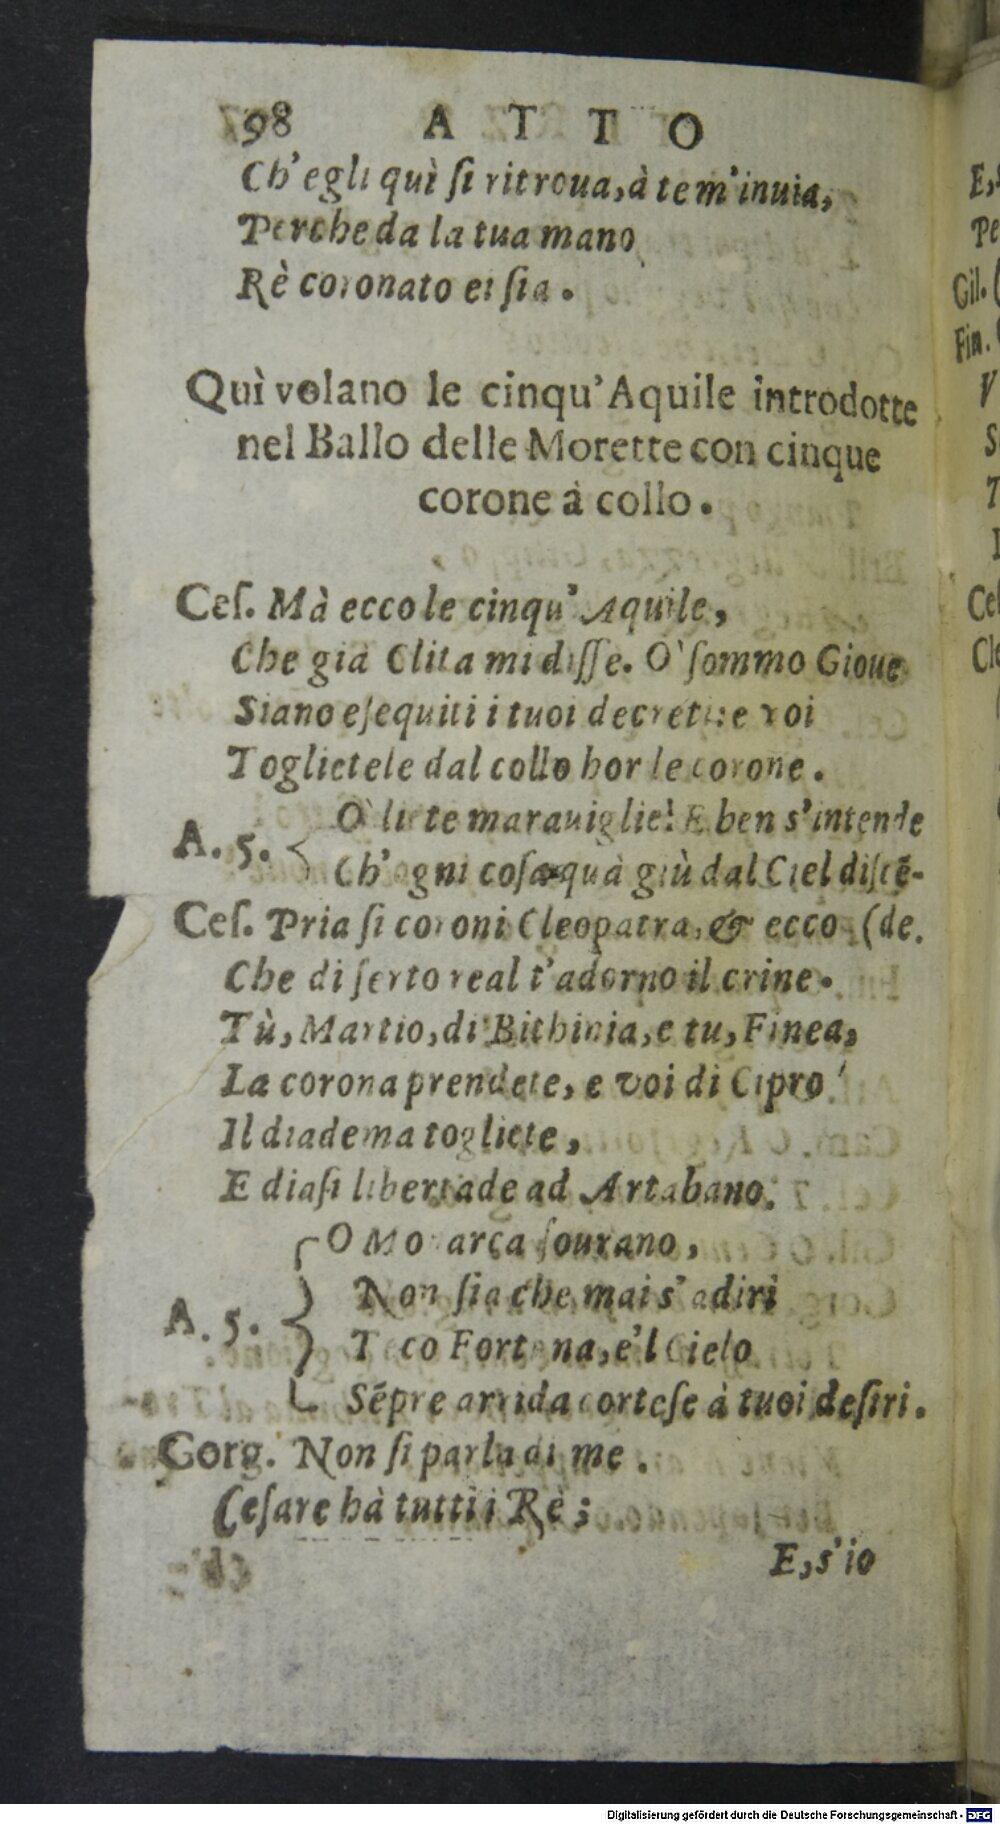 98 ATTO
Ch'egli quì ſi ritroua, à te m'inuia,
Perche da la tua mano
Rè coronato ei ſia.
Quì volano le cinqu'Aquile introdotte
nel Ballo delle Morette con cinque
corone à collo.
Ceſ. Mà ecco le cinqu' Aquile,
Che già Clita mi diſſe. O' ſommo Gioue
Siano eſequiti i tuoi decreti: e voi
Toglietele dal collo hor le corone.
A. 5. O' liete marauiglie! E ben s'intende
Ch'ogni coſa quà giù dal Ciel diſcē-
Ceſ. Pria ſi coroni Cleopatra, & ecco (de.
Che di ſerto real t'adorno il crine.
Tù, Martio, di Bithinia, e tu, Finea,
La corona prendete, e voi di Cipro
Il diadema togliete,
E diaſi libertade ad Artabano.
O Monarca ſourano,
Non ſia che mai s'adiri
A. 5. Teco Fortuna, e'l Cielo
Sēpre arrida corteſe à tuoi deſiri.
Gorg. Non ſi parla di me.
Ceſare hà tutti i Rè;
E, s'io
E,s
Pe
Gil. (
Fin.
V
S
T
Ceſ
Cle
Digitalisierung gefördert durch die Deutsche Forschungsgemeinschaft - DFG